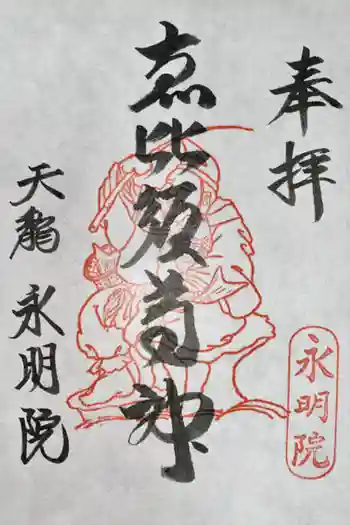 奉拝
恵比須尊神
天龍 永明院
永明院